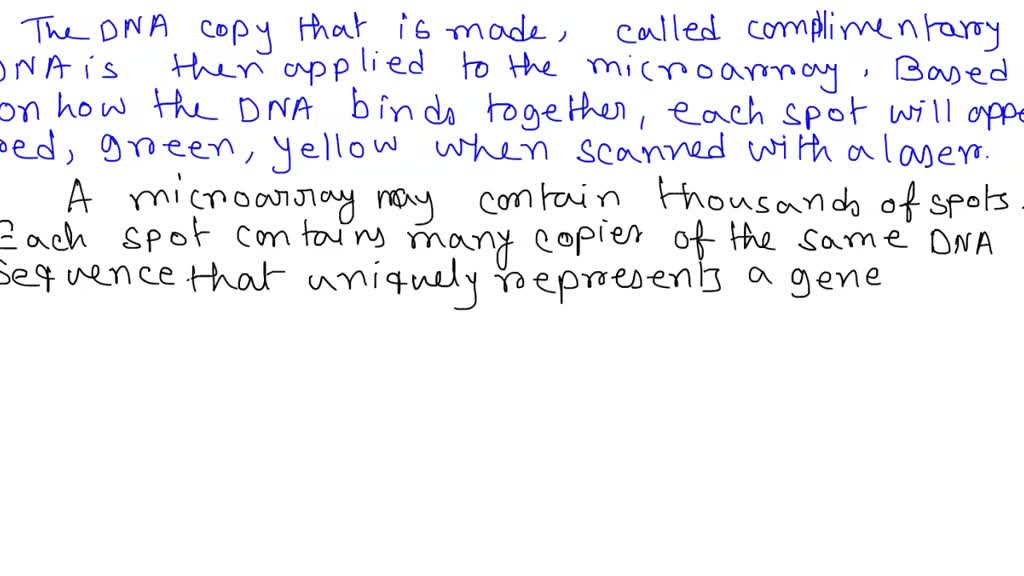 The DNA copy that is made, called complimentary
DNA is then applied to the microarray. Based
on how the DNA binds together, each spot will appe
red, green, yellow when scanned with a laser.
A microarray may contain thousands of spots.
Each spot contains many copies of the same DNA
Sequence that uniquely represents a gene